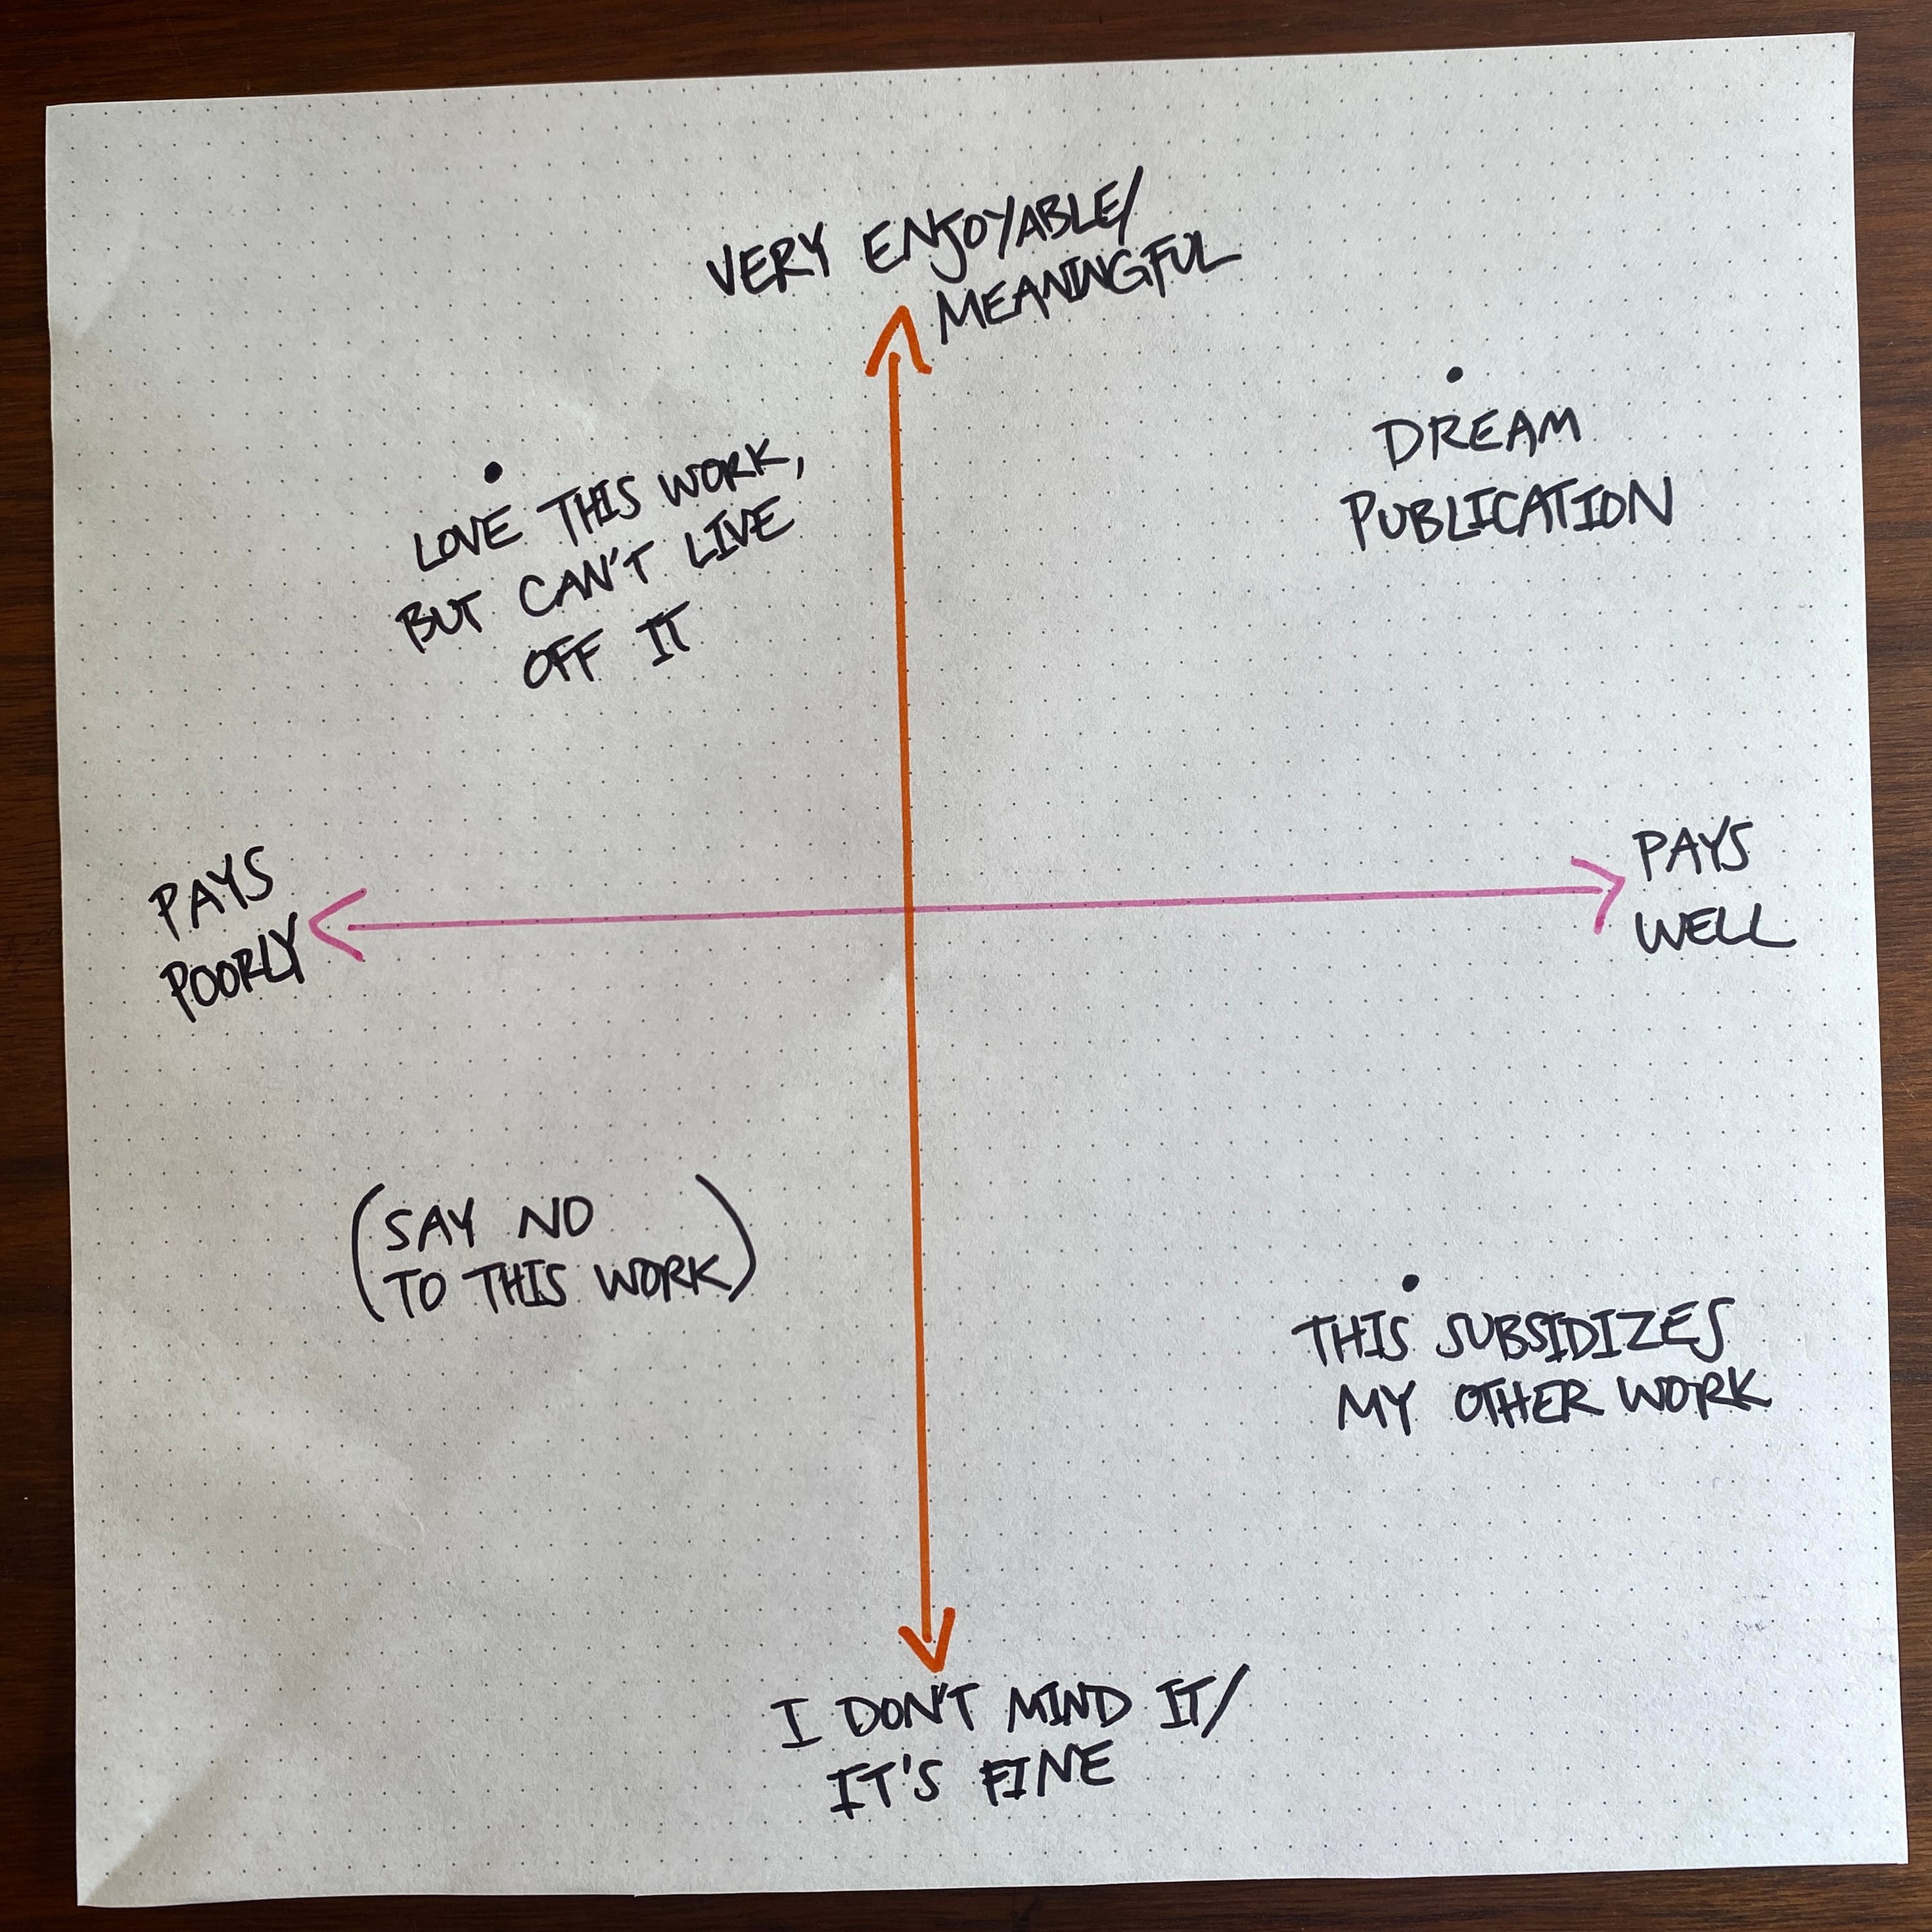 VERY ENJOYABLE/
MEANINGFUL
DREAM
PUBLICATION
LOVE THIS WORK,
BUT CAN'T LIVE
OFF IT
PAYS
POORLY
PAYS
WELL
(SAY NO
TO THIS WORK)
THIS SUBSIDIZES
MY OTHER WORK
I DON'T MIND IT/
IT'S FINE